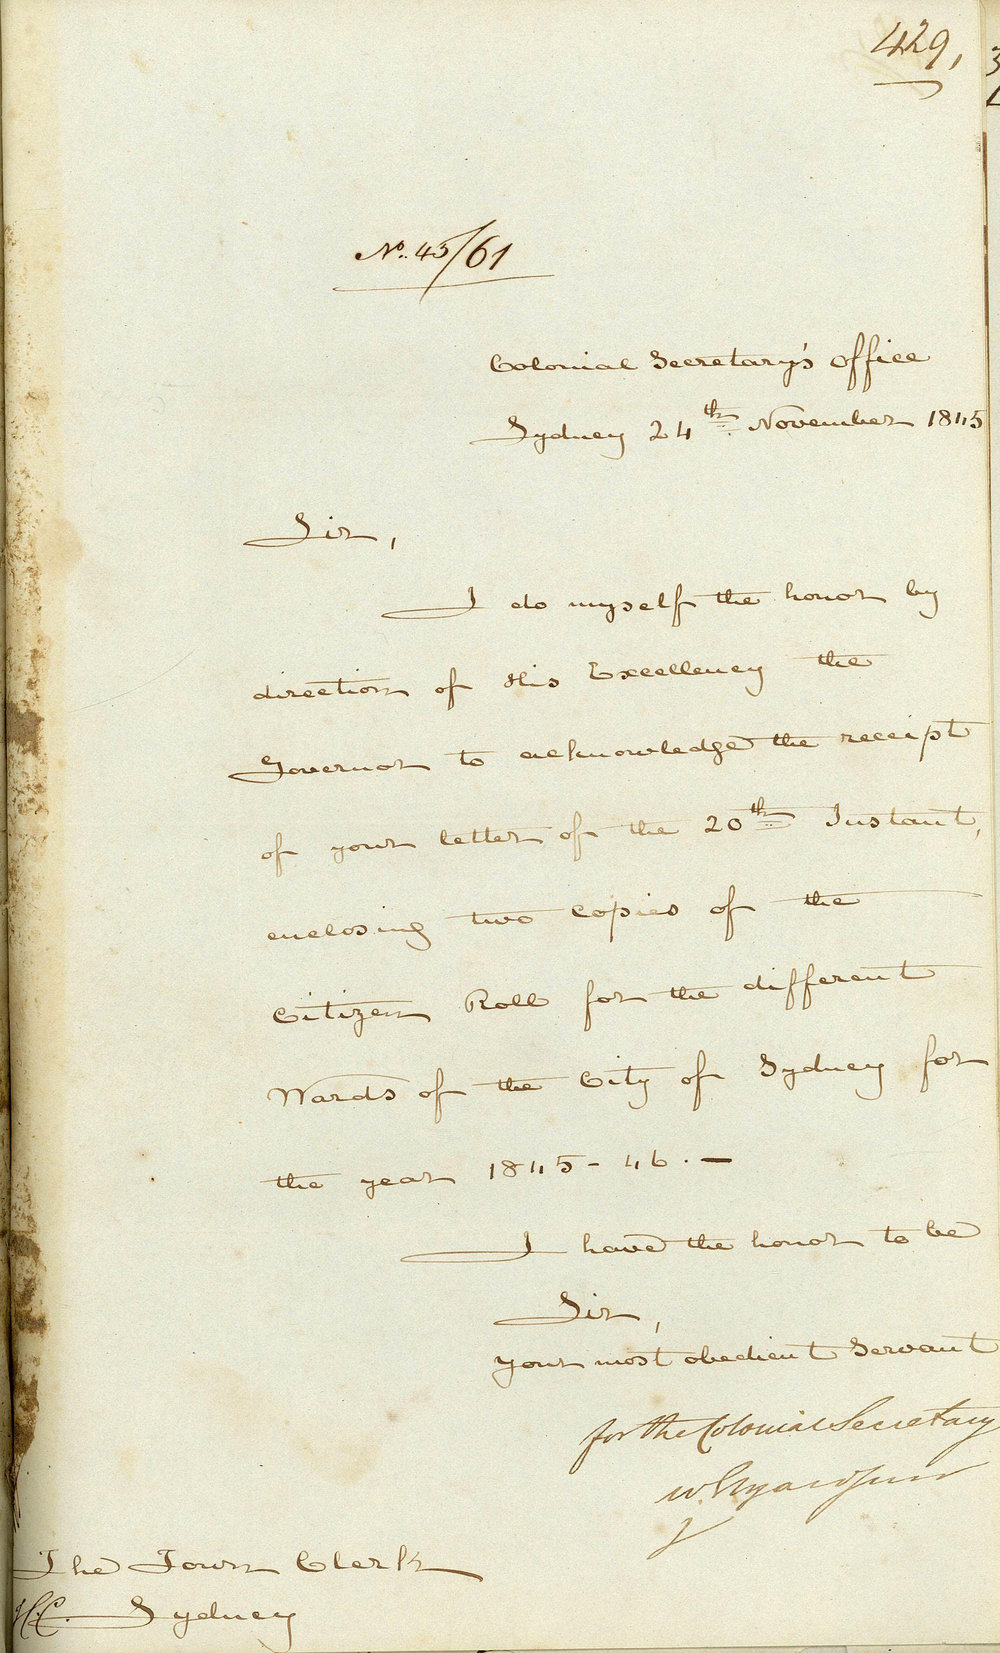 429,
No. 45/61
Colonial Secretary's Office
Sydney 24th November 1845
Sir,
I do myself the honor by
direction of His Excellency the
Governor to acknowledge the receipt
of your letter of the 20th Instant,
enclosing two copies of the
Citizen Roll for the different
Wards of the City of Sydney for
the year 1845-46.-
I have the honor to be
Sir,
your most obedient Servant
for the Colonial Secretary
W.
The Town Clerk
Sydney